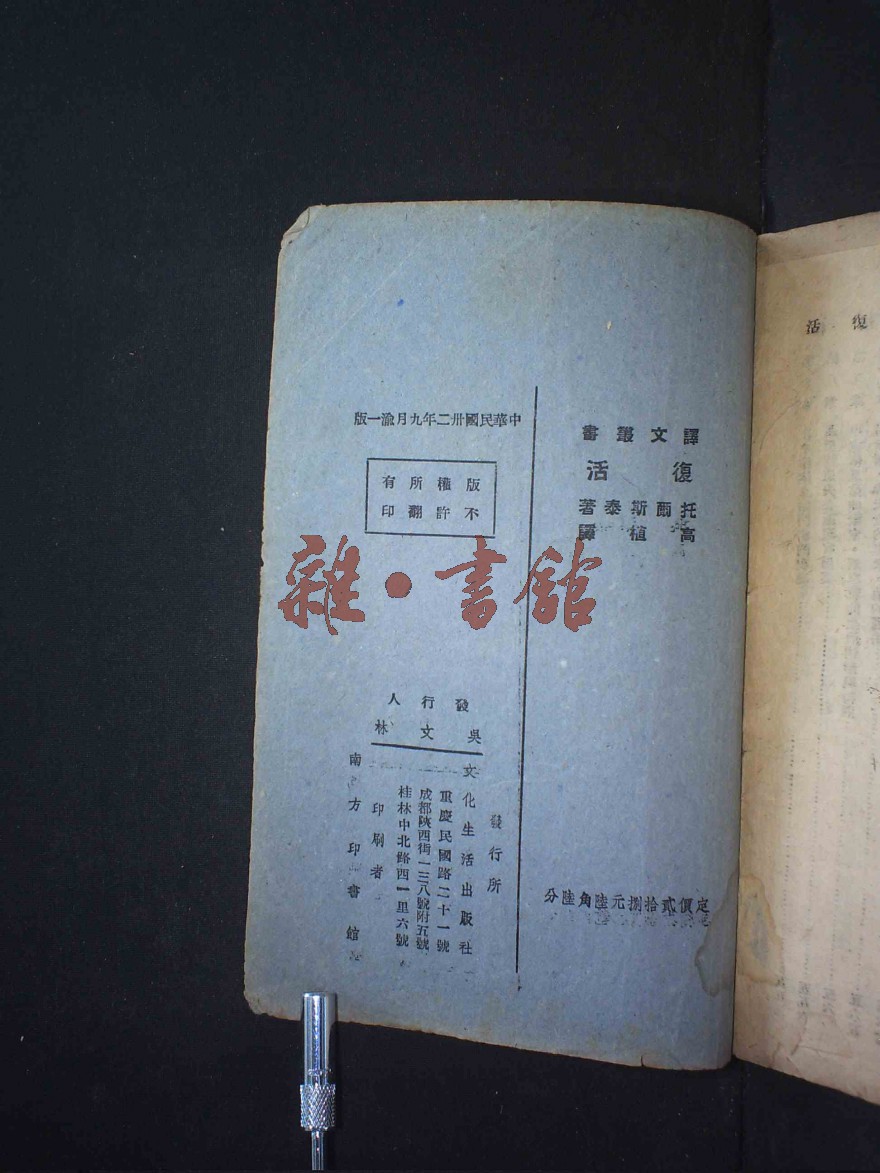 譯文叢書
復活
托爾斯泰著
高植譯
定價貳拾捌元陸角陸分
中華民國卅二年九月渝一版
版權所有
不許翻印
發行人
吳文林
發行所
文化生活出版社
重慶民國路二十一號
成都陝西街一三八號附五號
桂林中北路西一里六號
印刷者
南方印書館
復活
雜·書館